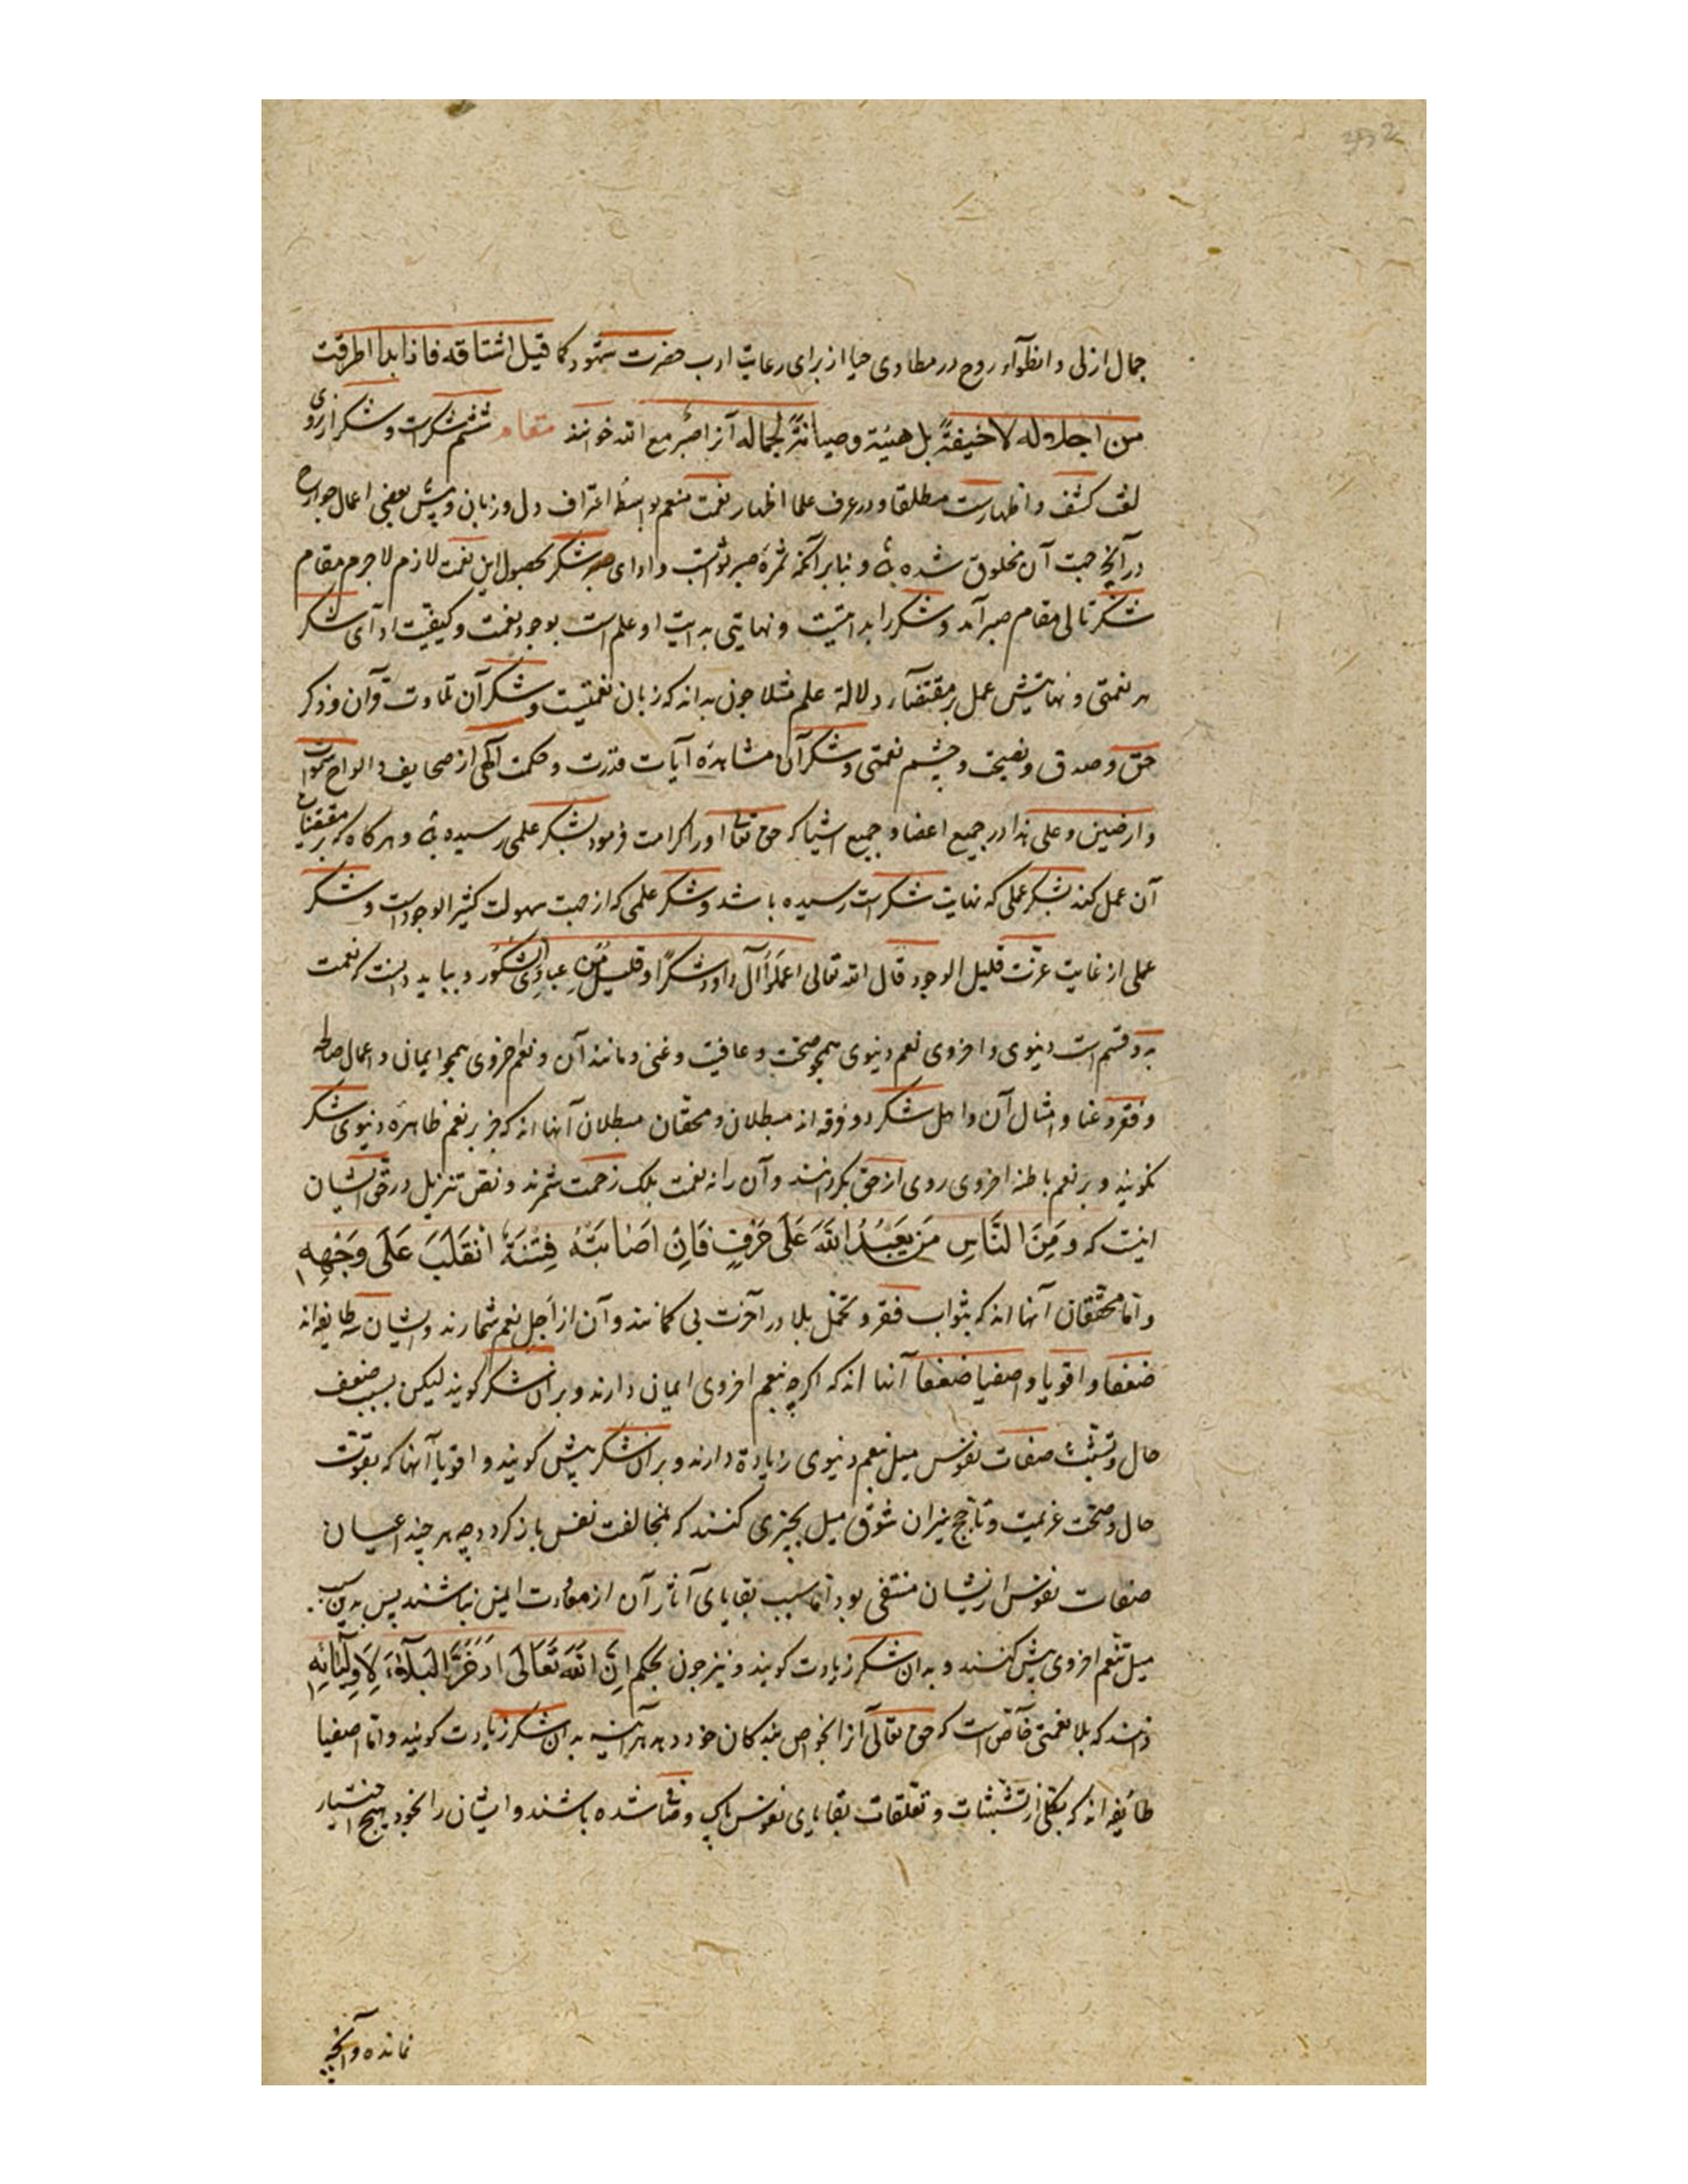 جمال ازلی و انطوآء روح در مطاوی حیا از برای رعایت ادب حضرت شهود کما قیل اشتاقه فاذا بدا اطرقت
من اجلاله لا خیفةً بل هیبة وصیانةً لجماله آنرا صبر مع الله خوانند مقام ششم شکرات و شکر از روی
لغت کشف و اظهارست مطلقا و در عرف علما اظهار نعمت منعم بواسطه اعتراف دل و زبان و بعضی اعمال جوارح
در آنچه جهت آن مخلوق شده و بنابر آنکه ثمرهٔ صبر ثوابست و ادای شکر بحصول این نعمت لازم لا جرم مقام
شکر تالی مقام صبر آمد و شکر را بدایتیست و نهایتی بدایت او علم است بوجود نعمت و کیفیت ادآی شکر
هر نعمتی و نهایتش عمل بر مقتضآء دلالة علم مثلا چون بداند که زبان نعمتیست و شکر آن تلاوت قرآن و ذکر
حق و صدق و نصیحت و چشم نعمتی و شکر آن مشاهدهٔ آیات قدرت و حکمت آلهی از صحایف و الواح سموات
وارضین و علی هذا در جمیع اعضا و جمیع اشیا که حق تعالی او را کرامت فرمود بشکر علمی رسیده و هرگاه که بر مقتضیات
آن عمل کند بشکر عملی که نهایت شکرست رسیده باشد و شکر علمی که از جهت سهولت کثیر الوجودست و شکر
عملی از غایت عزت قلیل الوجود قال الله تعالی اعملوا آل داود شکرًا وقلیلٌ من عبادی الشکور و بباید دانست که نعمت
بدو قسم است دنیوی و اخروی نعم دنیوی همچو صحت و عافیت و غنی و مانند آن و نعم اخروی همچو ایمان و اعمال صالحه
و فقر و غنا و امثال آن و اهل شکر دو فرقه اند مبطلان و محقان مبطلان آنها اند که جز بر نعم ظاهره دنیوی شکر
نکویند و بر نعم باطنه اخروی روی از حق بکردانند و آن را نه نعمت بلک زحمت شمرند و نص تنزیل در حق ایشان
اینست که وَمِنَ النَّاسِ مَن یَعْبُدُ اللهَ عَلَی حَرْفٍ فَاِنْ اَصَابَتْهُ فِتْنَةٌ انْقَلَبَ عَلَی وَجْهِهِ
و اما محققان آنها اند که بثواب فقر و تحمل بلا در آخرت بی کمانند و آن از اجل نعم شمارند و ایشان سه طایفه اند
ضعفا و اقویا و اصفیا ضعفا آنها اند که اکرچه بنعم اخروی ایمان دارند و بر آن شکر کویند لیکن بسبب ضعف
حال و تشبث صفات نفوس میل بنعم دنیوی زیادة دارند و بر آن شکر بیش کویند و اقویا آنها که بقوت
حال و صحت عزیمت و تاجج نیران شوق میل بچیزی کنند که بمخالفت نفس باز کردد چه هر چند اعیان
صفات نفوس از یشان منتفی بود اما بسبب بقایای آثار آن از معاودت ایمن نباشند پس بدین سبب
میل بنعم اخروی بیش کنند و بدان شکر زیادت کویند و نیز چون بحکم اِنَّ اللهَ تَعَالَی ادَّخَرَ البَلآءَ لِاَوْلِیَائِهِ
دانند که بلا نعمتی خاص است که حق تعالی آنرا بخواص بندکان خود دهد هر آینه بدان شکر زیادت کویند و اما اصفیا
طائفه اند که بکلی از تشبثات و تعلقات بقایای نفوس پاک و صافی شده باشند و ایشان را بخود هیچ اختیار
نمانده و آنچه